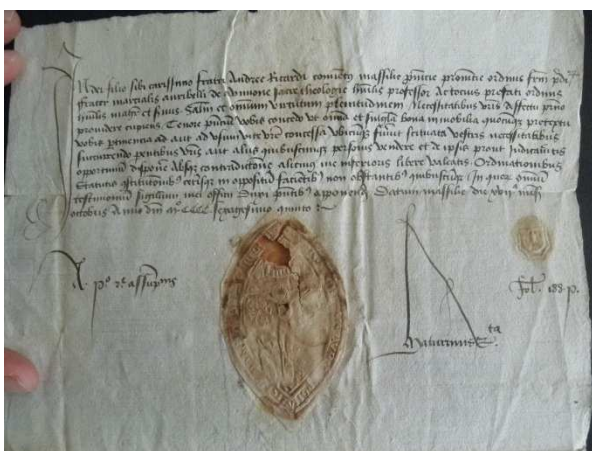 In dei filio sibi carissimo fratri Andree Ricardi conventus massilie provincie provincie ordinis frm pdi
frater marcialis auribelli de Avinione sacre theologie humilis professor Ac tocius prefati ordinis
humilis magr et servus Salm et omnium virtutum plenitudinem Necessitatibus vris affectu prno
providere cupiens Tenore pntium vobis concedo ut omnia et singula bona immobilia quocumque pretextu
vobis pertinencia ad aut ad usum vite vre concessa ubicumque fuerint scituata vestris necessitatibus
succurrendo parentibus vris aut aliis quibuscumque personis vendere et de ipsis prout judicaveritis
oportunum disponere Absque contradictione alicuius me inferioris libere valeatis Ordinationibus
statutis constitutionibus ceterisque in oppositum facientibus non obstantibus quibuscumque In quorum omnium
testimonium sigillum mei officii duxi pntibus apponendum Datum massilie die mensis
octobris Anno dni mº cccc sexagesimo quinto
Rta pº 2º assumptionis
fol. 188. p.